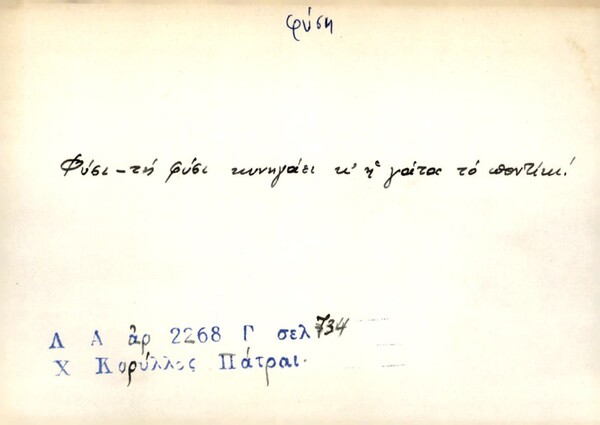 φύση
Φύσι - τή φύσι κυνηγάει κ' ἡ γάτα τό ποντίκι!
Λ Α ἀρ 2268 Γ σελ 734
Χ Κορύλλος Πάτραι.